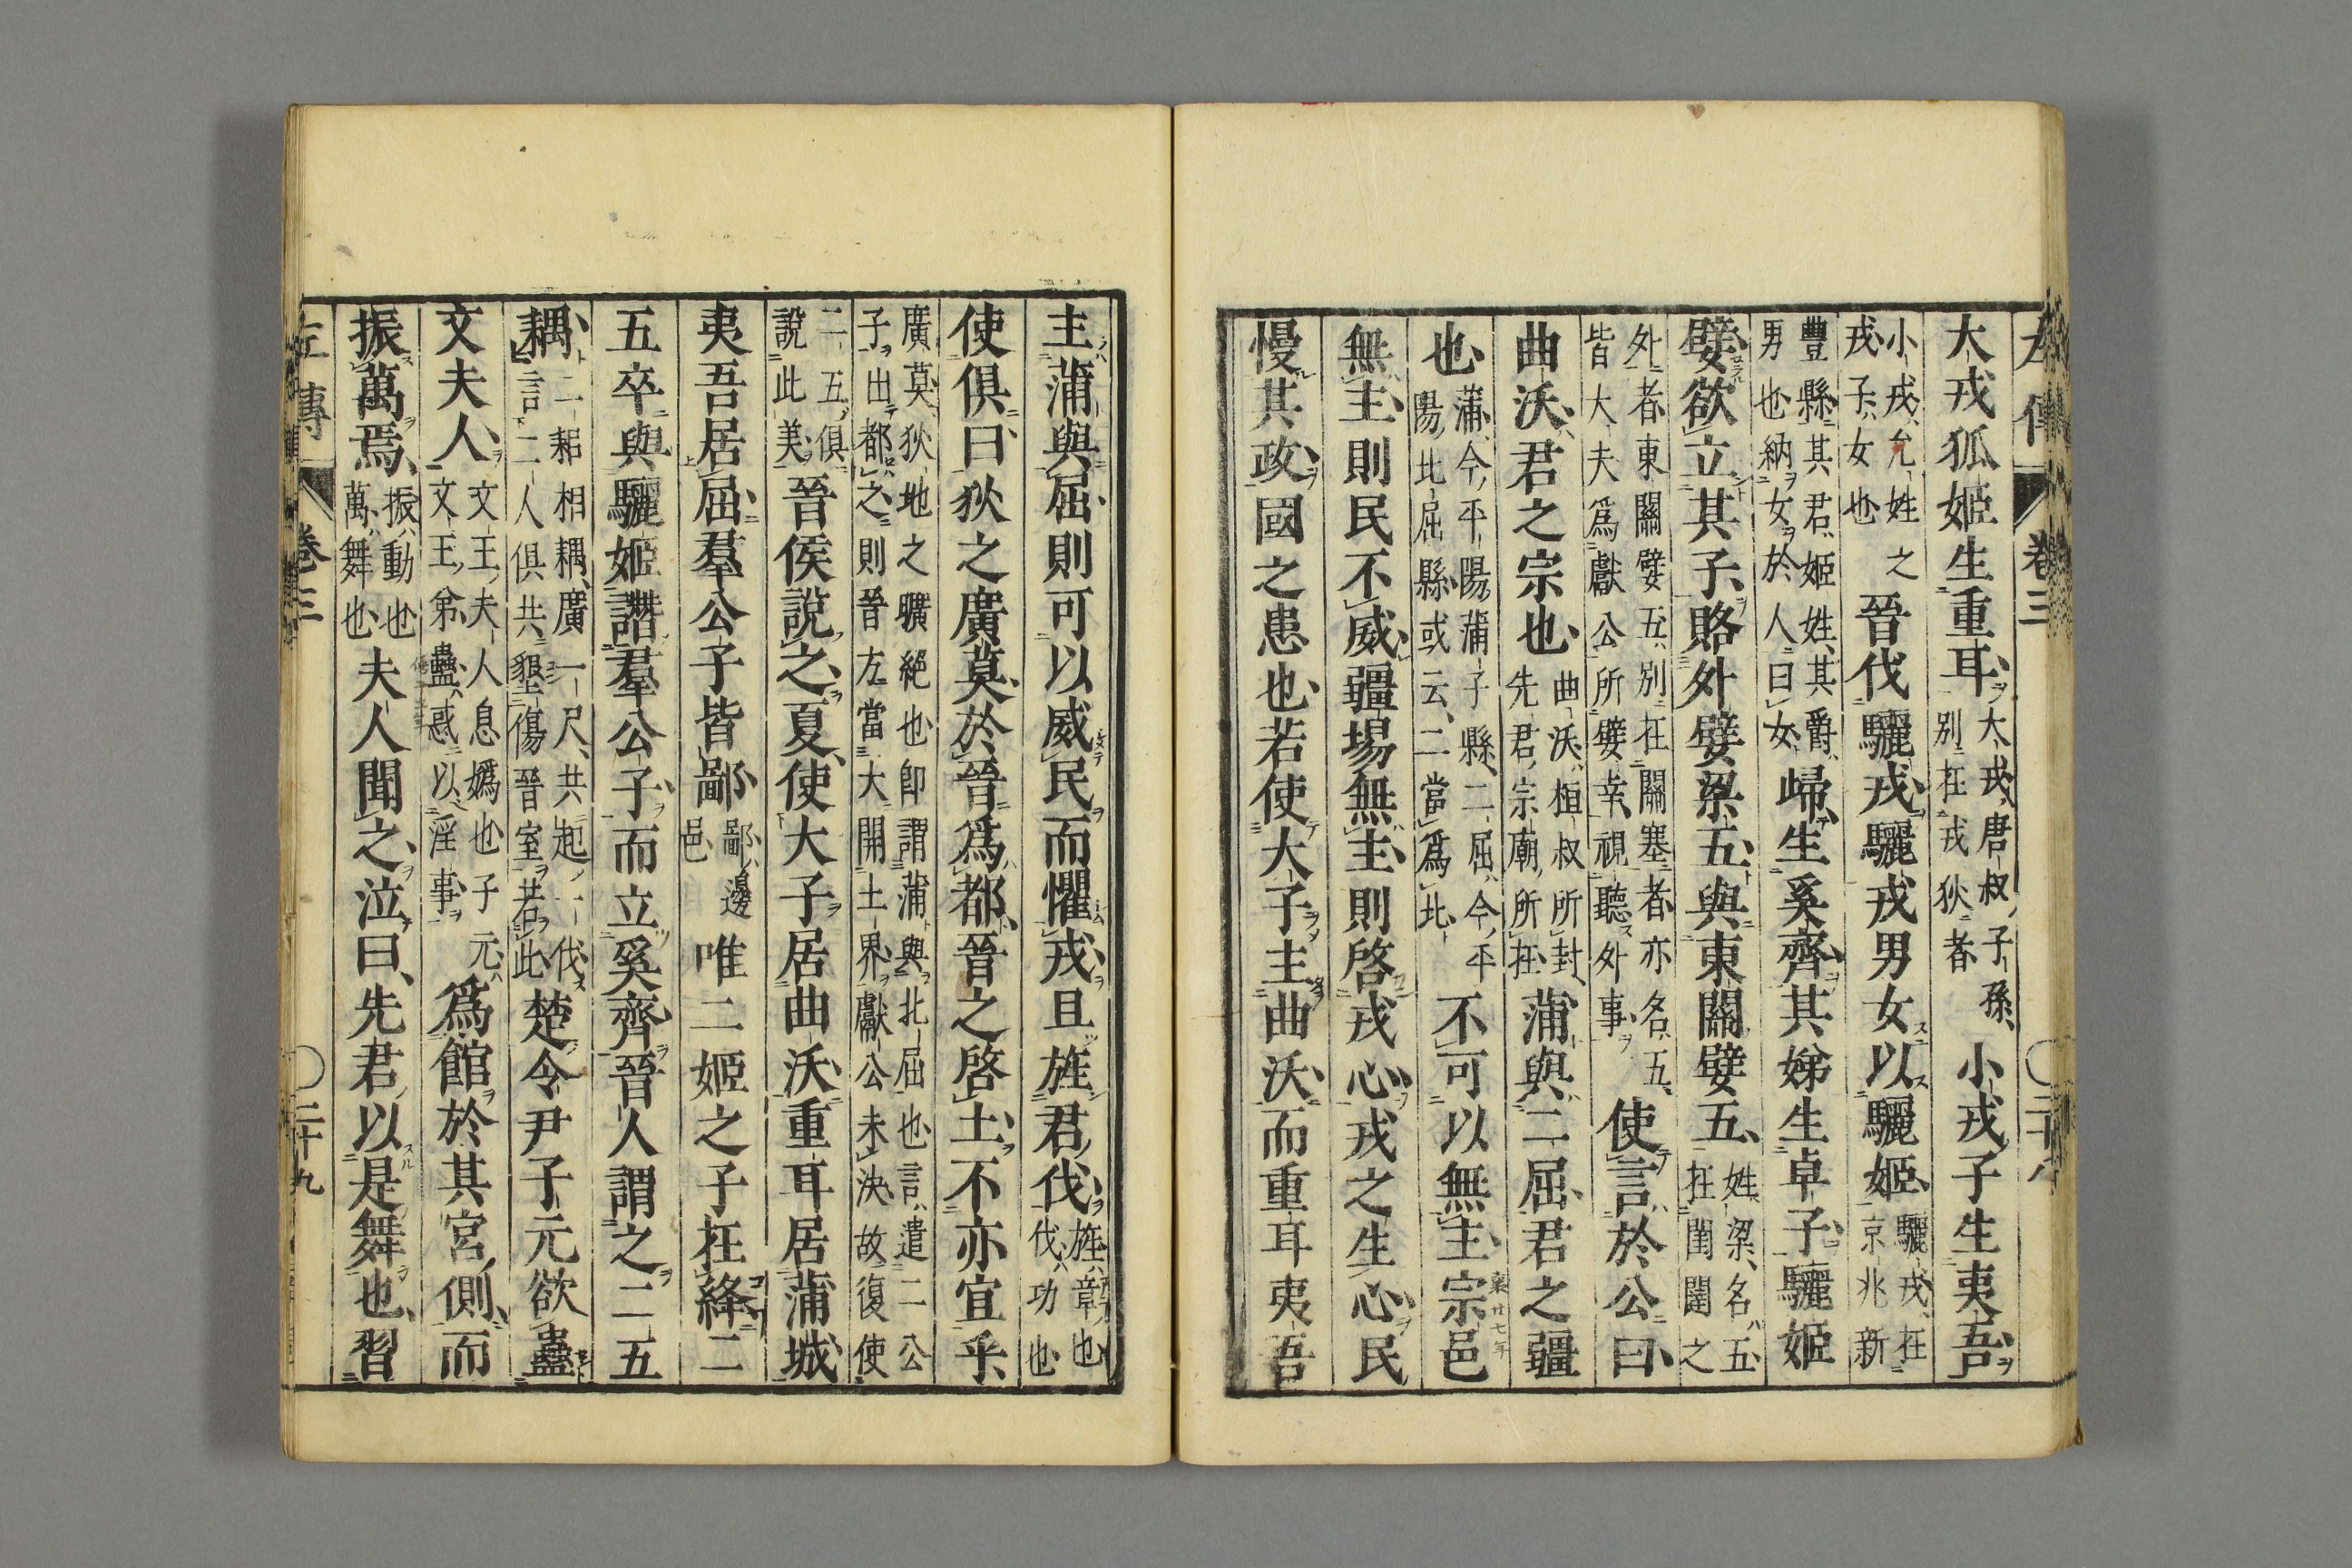 左傳 卷三 二十八
大戎狐姬生重耳大戎唐叔子孫別在戎狄者小戎子生夷吾
小戎允姓之戎子女也晉伐驪戎驪戎男女以驪姬驪戎在京兆新
豐縣其君姬姓其爵男也納女於人曰女歸生奚齊其娣生卓子驪姬
嬖欲立其子賂外嬖梁五與東關嬖五姓梁名五在閨闥之
外者東關嬖五別在關塞者亦名五皆大夫爲獻公所嬖幸視聽外事使言於公曰
曲沃君之宗也曲沃桓叔所封先君宗廟所在蒲與二屈君之疆
也蒲今平陽蒲子縣二屈今平陽北屈縣或云二當爲北不可以無主宗邑
無主則民不威疆場無主則啓戎心戎之生心民
慢其政國之患也若使大子主曲沃而重耳夷吾
主蒲與屈則可以威民而懼戎且旌君伐旌章也伐功也
使俱曰狄之廣莫於晉爲都晉之啓土不亦宜乎
廣莫狄地之曠絕也卽謂蒲與北屈也言遣二公子出都之則晉方當大開土界獻公未決故復使
二五俱說此美晉侯說之夏使大子居曲沃重耳居蒲城
夷吾居屈羣公子皆鄙鄙邊邑唯二姬之子在絳二
五卒與驪姬譖羣公子而立奚齊晉人謂之二五
耦二耜相耦廣一尺共起一伐言二人俱共墾傷晉室若此楚令尹子元欲蠱
文夫人文王夫人息嬀也子元文王弟蠱惑以淫事爲館於其宮側而
振萬焉振動也萬舞也夫人聞之泣曰先君以是舞也習
左傳 卷三 二十九